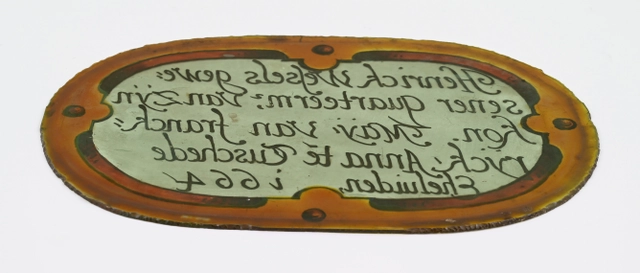 Henrick Wessels gewe:
sener quarteerm: van Zijn
Kon. May. van franck:
ryck: Anna të Cuschede
Eheluiden, i664